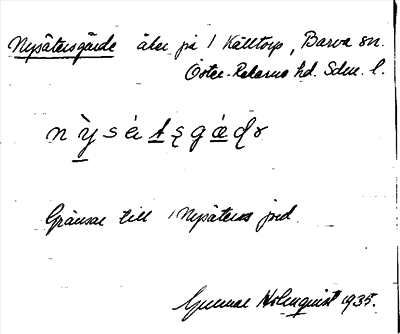 Nysätersgärde åker på 1 Källtorp, Barva sn.
Öster-Rekarne hd. Sdm. l.
Gränsar till 1 Nysäters jord.
Gunnar Holmquist 1935.